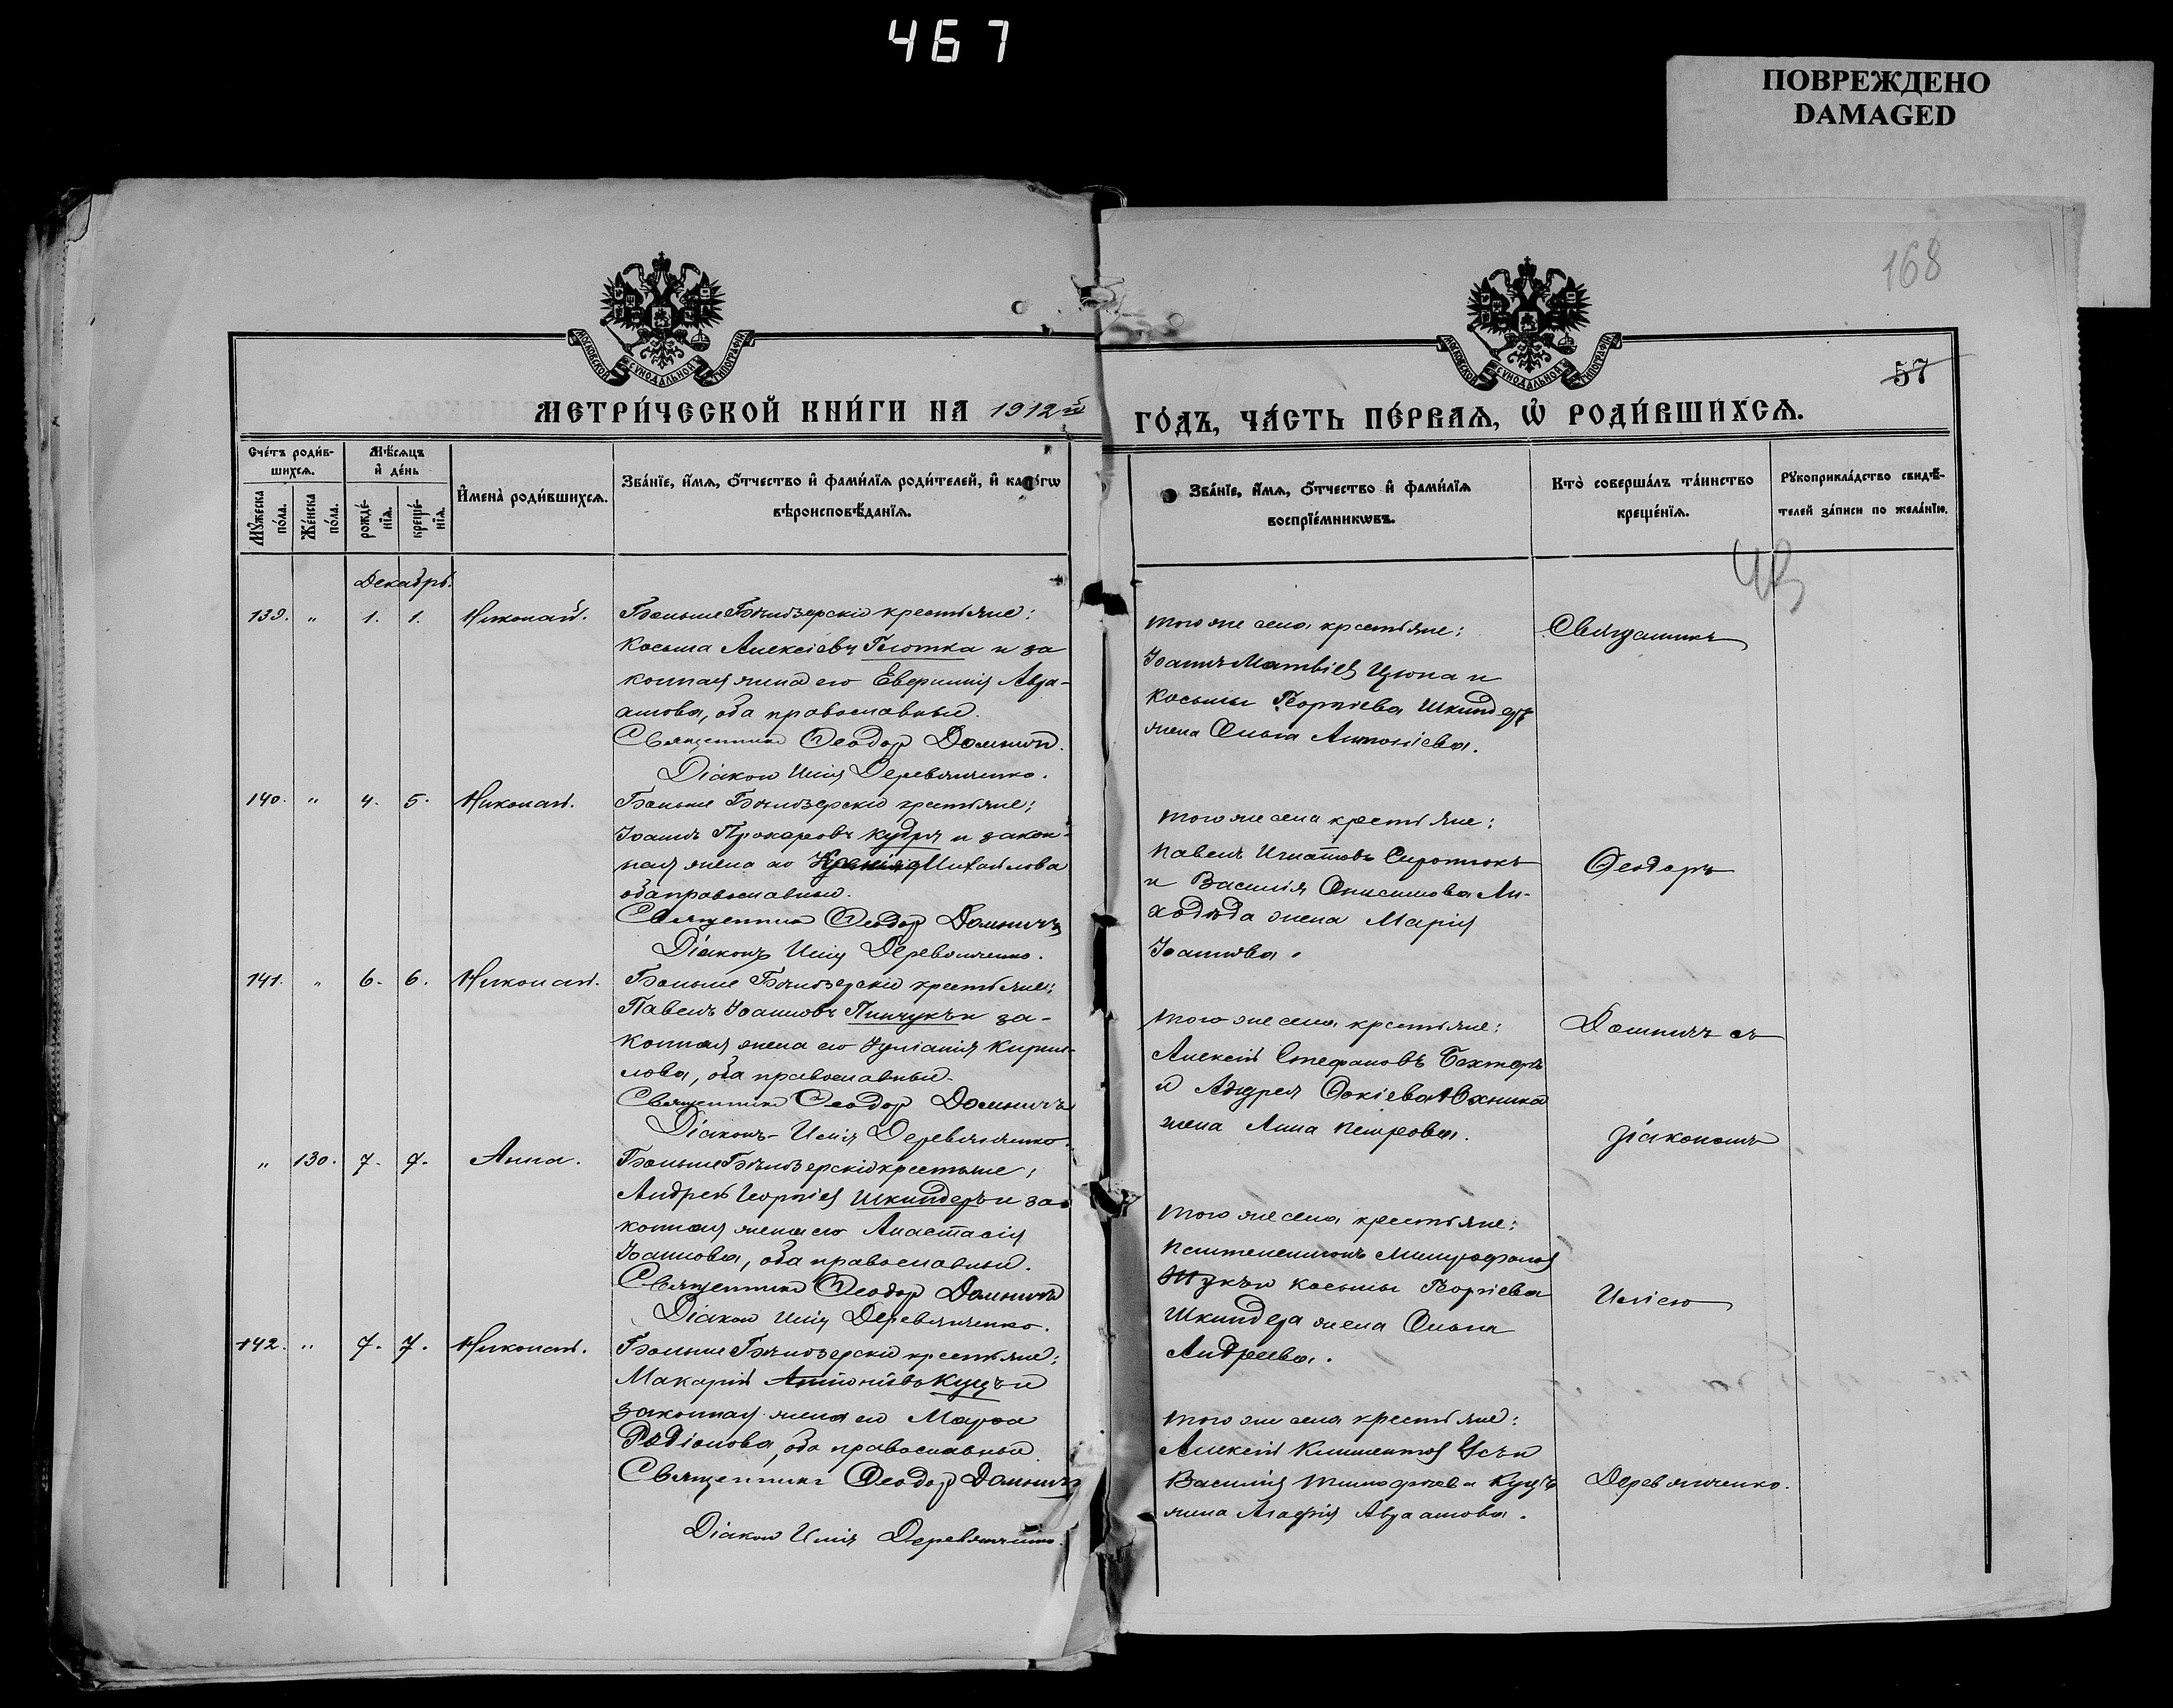 467
ПОВРЕЖДЕНО
DAMAGED
168
МОСКОВСКОЙ СѴНОДАЛЬНОЙ ТИПОГРАФІИ
МОСКОВСКОЙ СѴНОДАЛЬНОЙ ТИПОГРАФІИ
57
МЕТРИ́ЧЕСКОЙ КНИ́ГИ НА 1912й
ГО́ДЪ, ЧА́СТЬ ПЕ́РВАѦ, Ѡ҆ РОДИ́ВШИХСѦ.
Сче́тъ роди́в-
шихсѧ.
Мꙋ́жеска
по́ла.
Же́нска
по́ла.
Мѣ́сѧцъ
и҆ де́нь
рожде́-
нїѧ.
креще́-
нїѧ.
И҆мена̀ роди́вшихсѧ.
Зва́нїе, и҆́мѧ, ѻ҆́тчество и҆ фами́лїѧ роди́телей, и҆ како́гѡ
вѣроисповѣ́данїѧ.
Зва́нїе, и҆́мѧ, ѻ҆́тчество и҆ фами́лїѧ
воспрїе́мникѡвъ.
Кто̀ соверша́лъ та́инство
креще́нїѧ.
Рꙋкоприкла́дство свидѣ́-
телей за́писи по жела́нїю.
Декабрь.
139. " 1. 1. Николай.
Больше Бѣлозерскіе крестьяне:
Косьма Алексіевъ Глотка и за
конная жена его
оба православные.
Священникъ Ѳеодор Домнич.
Діакон Илія Деревянченко.
того же села крестьяне:
Іоаннъ Матвіев Цюпа и
Косьмы Георгіева Шкиндеръ
жена Ольга Антоніева.
Священникъ
140. " 4. 5. Николай.
Больше Бѣлозерскіе крестьяне:
Іоаннъ Прохоровъ Кудря и закон-
ная жена его Михайлова
оба православные.
Священникъ Ѳеодор Домничъ
Діаконъ Илія Деревянченко.
того же села крестьяне:
Павелъ Игнатовъ Сиротюкъ
и Василія Онисимова Ли-
ходѣда жена Марія
Іоаннова.
Ѳеодоръ
141. " 6. 6. Николай.
Больше Бѣлозерскіе крестьяне:
Павелъ Іоанновъ Пинчукъ и за-
конная жена его Іуліанія Кирил-
лова, оба православные.
Священникъ Ѳеодор Домничъ
Діаконъ Илія Деревянченко.
того же села крестьяне:
Алексій Стефановъ Бехтеръ
и Андрея
жена Анна Петрова.
Домничъ съ
діакономъ
" 130. 7. 7. Анна.
Больше Бѣлозерскіе крестьяне:
Андрей Георгіев Шкиндеръ и за
конная жена его Анастасія
Іоаннова, оба православные.
Священникъ Ѳеодор Домничъ
Діакон Илія Деревянченко.
того же села крестьяне:
Пантелеимонъ Митрофанов
Косьмы Георгіева
Шкиндера жена Ольга
Андреева.
Иліею
142. " 7. 7. Николай.
Больше Бѣлозерскіе крестьяне:
Макарій Антоніевъ Куцъ и
законная жена его Марѳа
Родіонова, оба православные.
Священникъ Ѳеодор Домничъ
Діакон Илія Деревянченко.
того же села крестьяне:
Алексій Климентов Усъ и
Василія Тимофеева Куцъ
жена Агафія
Деревянченко.